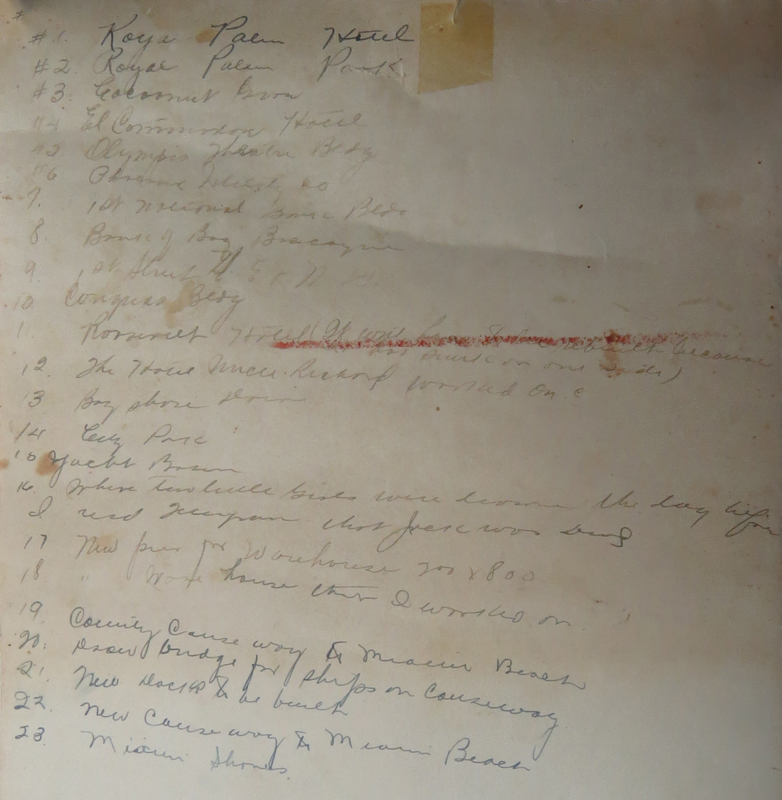 #1. Royal Palm Hotel
#2. Royal Palm Park
#3. Cocoanut Grove
#4 El Commodore Hotel
#5 Olympia Theatre Bldg
#6
7. 1st National Bank Bldg
8. Bank of Bay Biscayne
9 1st Street
10 Congress Bldg
1. Roosevelt Hotel (It because
sunk on one side)
12. The House Uncle Richard worked on
13 Bay shore Drive
14 City Park
15 Yacht Basin
16. Where two little Girls were drowned the day before
I read that Jack was
17 New pier for Warehouse 200 x 800
18 " Ware house that I worked on
19. County Cause way to Miami Beach
20. Draw bridge for ships on Causeway
21. New Docks to be built
22. New Cause way to Miami Beach
23 Miami Shores.